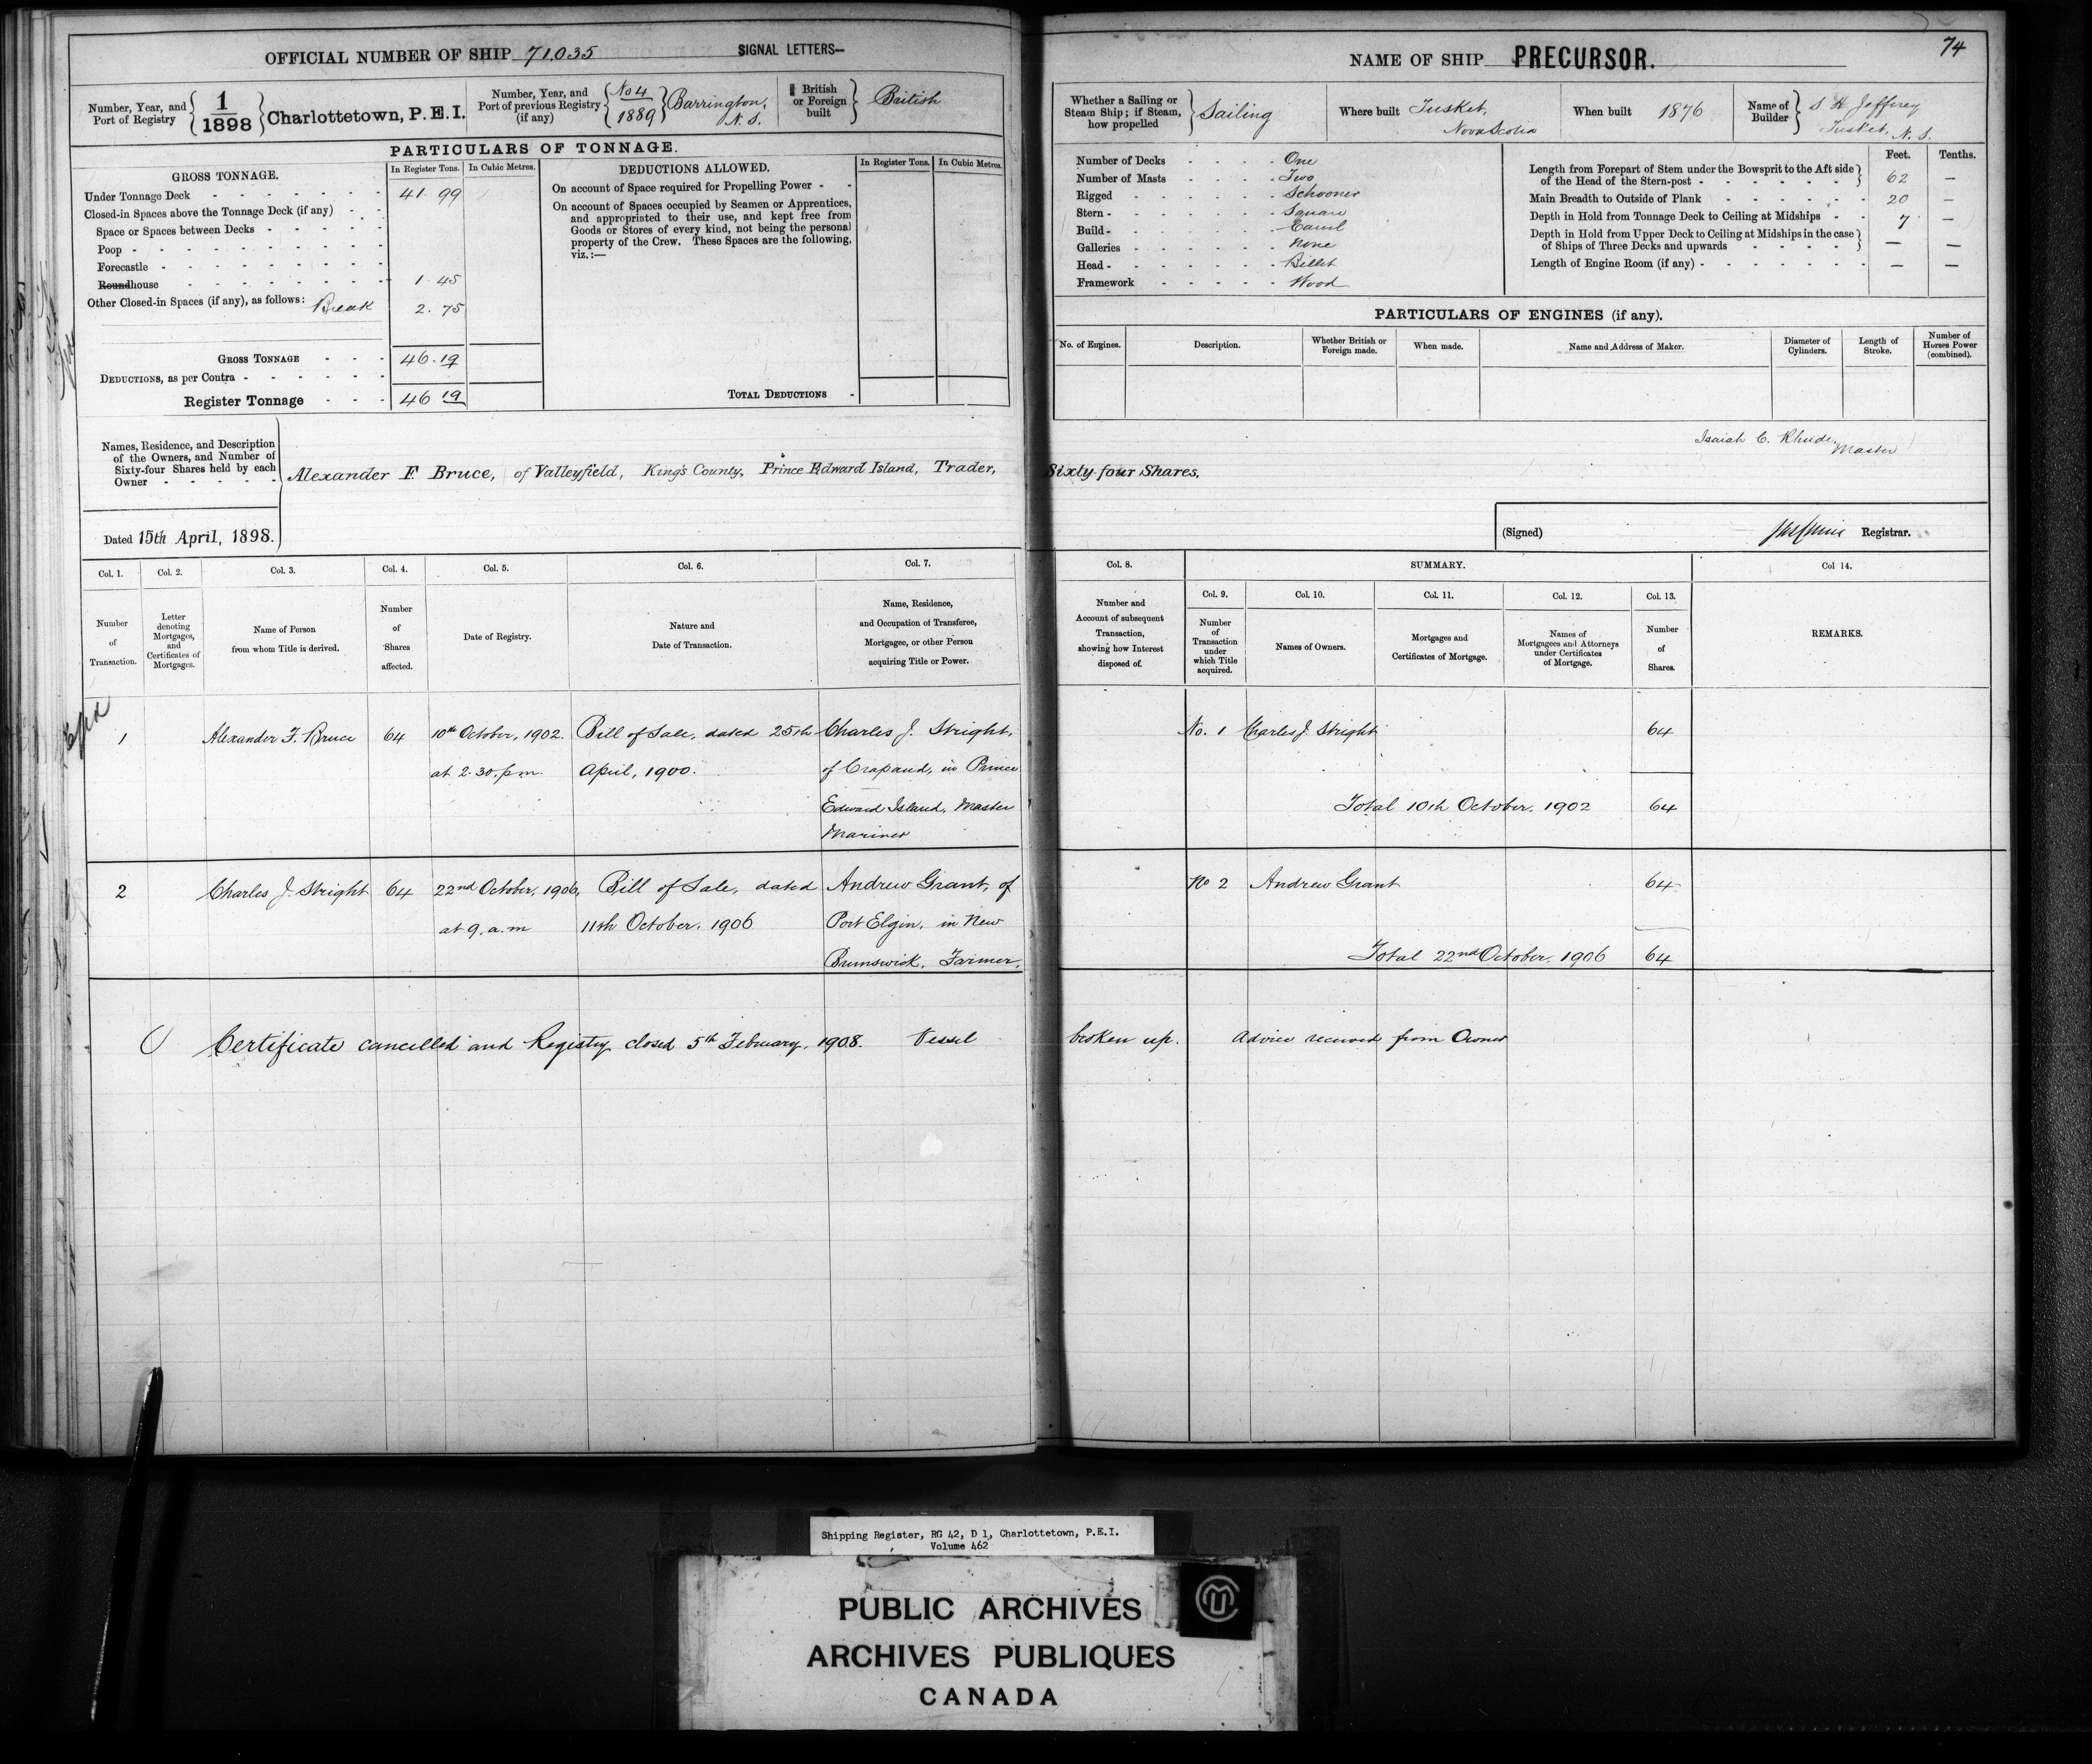 OFFICIAL NUMBER OF SHIP 71.035 SIGNAL LETTERS—
Number, Year, and Port of Registry 1/1898 Charlottetown, P.E.I.
Number, Year, and Port of previous Registry (if any) No 4/1889 Barrington, N.S.
British or Foreign built British
PARTICULARS OF TONNAGE.
GROSS TONNAGE. In Register Tons. In Cubic Metres.
Under Tonnage Deck 41.99
Closed-in Spaces above the Tonnage Deck (if any)
Space or Spaces between Decks
Poop
Forecastle
Roundhouse 1.45
Other Closed-in Spaces (if any), as follows: Break 2.75
GROSS TONNAGE 46.19
DEDUCTIONS, as per Contra
Register Tonnage 46 19
DEDUCTIONS ALLOWED. In Register Tons. In Cubic Metres.
On account of Space required for Propelling Power
On account of Spaces occupied by Seamen or Apprentices,
and appropriated to their use, and kept free from
Goods or Stores of every kind, not being the personal
property of the Crew. These Spaces are the following,
viz.:—
TOTAL DEDUCTIONS
Names, Residence, and Description
of the Owners, and Number of
Sixty-four Shares held by each
Owner
Alexander F. Bruce, of Valleyfield, King's County, Prince Edward Island, Trader, Sixty-four Shares.
Dated 15th April, 1898.
Col. 1. Col. 2. Col. 3. Col. 4. Col. 5. Col. 6. Col. 7.
Number of Transaction.
Letter denoting Mortgages, and Certificates of Mortgages.
Name of Person from whom Title is derived.
Number of Shares affected.
Date of Registry.
Nature and Date of Transaction.
Name, Residence, and Occupation of Transferee, Mortgagee, or other Person acquiring Title or Power.
1 Alexander F. Bruce 64 10th October, 1902. Bill of Sale, dated 25th Charles J. Stright,
at 2.30. p.m. April, 1900. of Crapaud, in Prince
Edward Island, Master
Mariner
2 Charles J. Stright 64 22nd October, 1906, Bill of Sale, dated Andrew Grant, of
at 9. a.m 11th October, 1906 Port Elgin, in New
Brunswick, Farmer.
Certificate cancelled and Registry closed 5th February, 1908. Vessel broken up. Advice received from Owner
74
NAME OF SHIP PRECURSOR.
Whether a Sailing or Steam Ship; if Steam, how propelled Sailing
Where built Tusket, Nova Scotia
When built 1876
Name of Builder S H Jeffrey Tusket, N.S.
Number of Decks One
Number of Masts Two
Rigged Schooner
Stern Square
Build Carvel
Galleries None
Head Billet
Framework Wood
Feet. Tenths.
Length from Forepart of Stem under the Bowsprit to the Aft side
of the Head of the Stern-post 62 —
Main Breadth to Outside of Plank 20 —
Depth in Hold from Tonnage Deck to Ceiling at Midships 7 —
Depth in Hold from Upper Deck to Ceiling at Midships in the case
of Ships of Three Decks and upwards — —
Length of Engine Room (if any) — —
PARTICULARS OF ENGINES (if any).
No. of Engines. Description. Whether British or Foreign made. When made. Name and Address of Maker. Diameter of Cylinders. Length of Stroke. Number of Horses Power (combined).
Isaiah C. Rhude, Master
(Signed) Registrar.
Col. 8. SUMMARY. Col 14.
Col. 9. Col. 10. Col. 11. Col. 12. Col. 13.
Number and Account of subsequent Transaction, showing how Interest disposed of.
Number of Transaction under which Title acquired.
Names of Owners.
Mortgages and Certificates of Mortgage.
Names of Mortgagees and Attorneys under Certificates of Mortgage.
Number of Shares.
REMARKS.
No. 1 Charles J. Stright 64
Total 10th October, 1902 64
No 2 Andrew Grant 64
Total 22nd October, 1906 64
Shipping Register, RG 42, D 1, Charlottetown, P.E.I.
Volume 462
PUBLIC ARCHIVES
ARCHIVES PUBLIQUES
CANADA